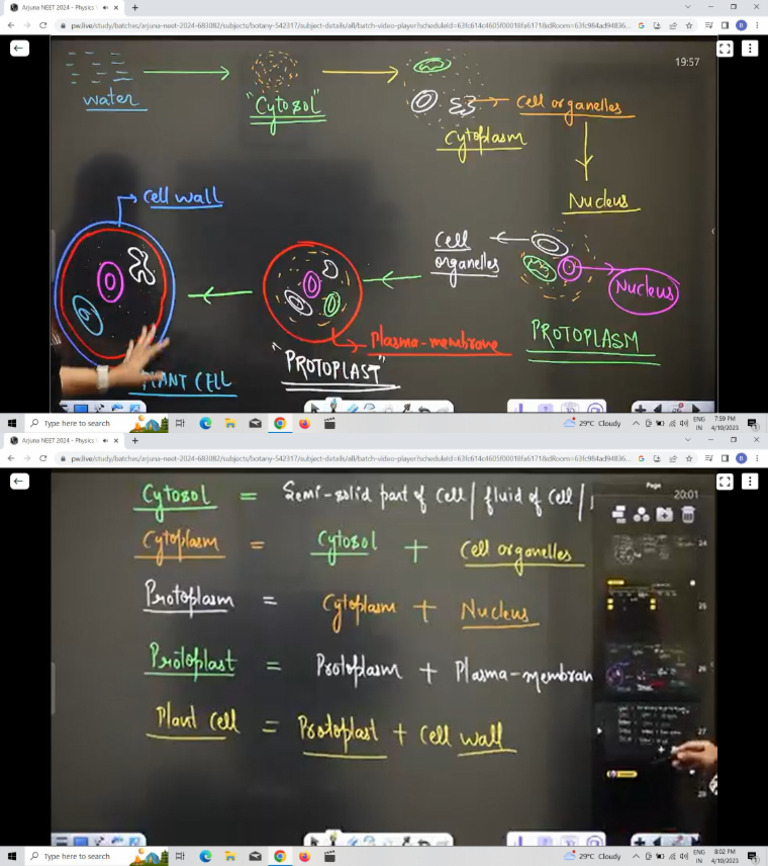 Arjuna NEET 2024 - Physics
pw.live/study/batches/arjuna-neet-2024-683082/subjects/botany-542317/subject-details/all/batch-video-player?scheduleId=63fc614c4605f00018fa6171&dRoom=63fc984ad94836...
19:57
water
"Cytosol"
Cell organelles
Cytoplasm
Nucleus
Cell wall
Cell
organelles
Nucleus
Plasma-membrane
PROTOPLASM
"PROTOPLAST"
PLANT CELL
Type here to search
29°C Cloudy
ENG
IN
7:59 PM
4/10/2023
Arjuna NEET 2024 - Physics
pw.live/study/batches/arjuna-neet-2024-683082/subjects/botany-542317/subject-details/all/batch-video-player?scheduleId=63fc614c4605f00018fa6171&dRoom=63fc984ad94836...
Page
20:01
Cytosol = Semi-solid part of cell / fluid of cell /
Cytoplasm = Cytosol + Cell organelles
Protoplasm = Cytoplasm + Nucleus
Protoplast = Protoplasm + Plasma-membran
Plant cell = Protoplast + Cell wall
24
25
26
27
28
Type here to search
29°C Cloudy
ENG
IN
8:02 PM
4/10/2023